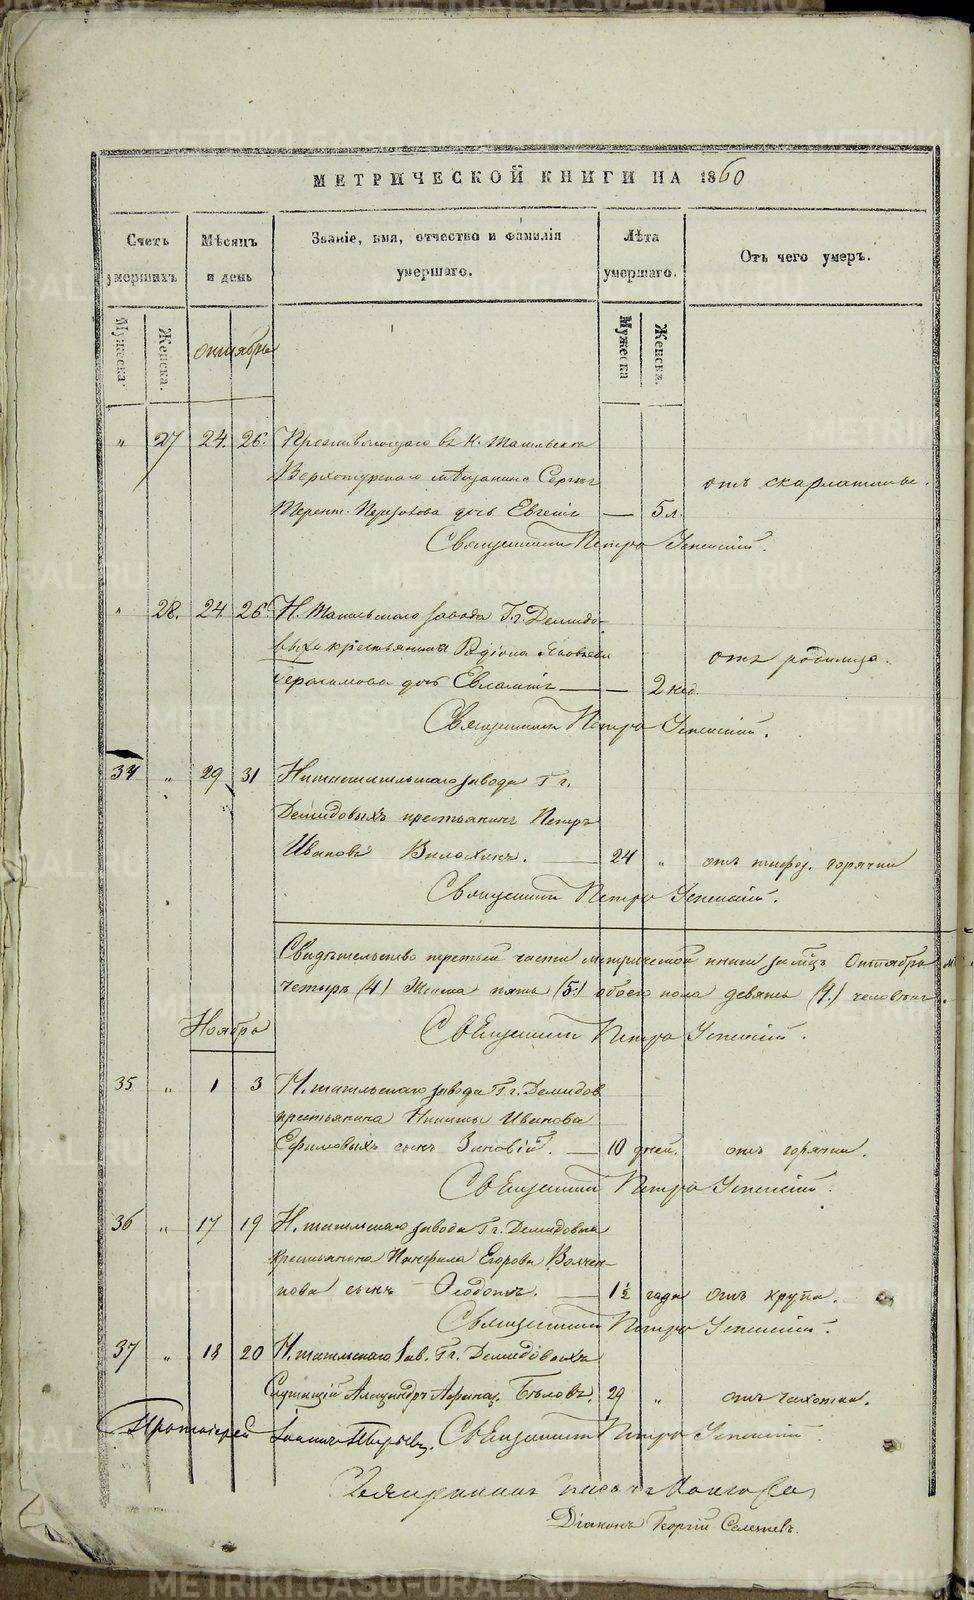 МЕТРИЧЕСКОЙ КНИГИ НА 1860
Счетъ умершихъ.
Мѣсяцъ и день
Званіе, имя, отчество и фамилія умершаго.
Лѣта умершаго.
Отъ чего умеръ.
Мужеска.
Женска.
Мужеска
Женскъ.
октябрь
" 27 24 26 Проживающаго въ Н. Тагильскѣ
Верхотурскаго мѣщанина Сергѣя
отъ скарлатины.
Терент. дочь Евгенія — 5 л.
Священникъ Петръ Успенскій.
" 28. 24 26 Н. Тагильскаго завода Гг. Демидо-
выхъ крестьянина Родіона Яковлева
отъ родимца.
Герасимова дочь Евлампія — — 2 нед.
Священникъ Петръ Успенскій.
34 " 29 31 Нижнетагильскаго завода Гг.
Демидовыхъ крестьянинъ Петръ
Ивановъ — 24 " отъ тифоз. горячки
Священникъ Петръ Успенскій.
Свидѣтельство третьей части метрической книги за мѣсяцъ Октябрь
четыре (4) Женска пять (5.) обоего пола девять (9.) человѣкъ.
Священникъ Петръ Успенскій.
Ноябрь
35 " 1 3 Н. тагильскаго завода Гг. Демидов
крестьянина Никиты Иванова
Ефимовыхъ сынъ Зиновій. — 10 дней. отъ горячки.
Священникъ Петръ Успенскій.
36 " 17 19 Н. тагильскаго завода Гг. Демидовыхъ
крестьянина Панфила Егорова Волчен-
кова сынъ Ѳеодотъ. — 1½ года отъ крупа.
Священникъ Петръ Успенскій.
37 " 18 20 Н. тагильскаго зав. Гг. Демидовыхъ
Служащій Александръ Бѣловъ. 29 " отъ чахотки.
Протоіерей Іоаннъ Священникъ Петръ Успенскій
Священникъ
Діаконъ Георгій Селезневъ.